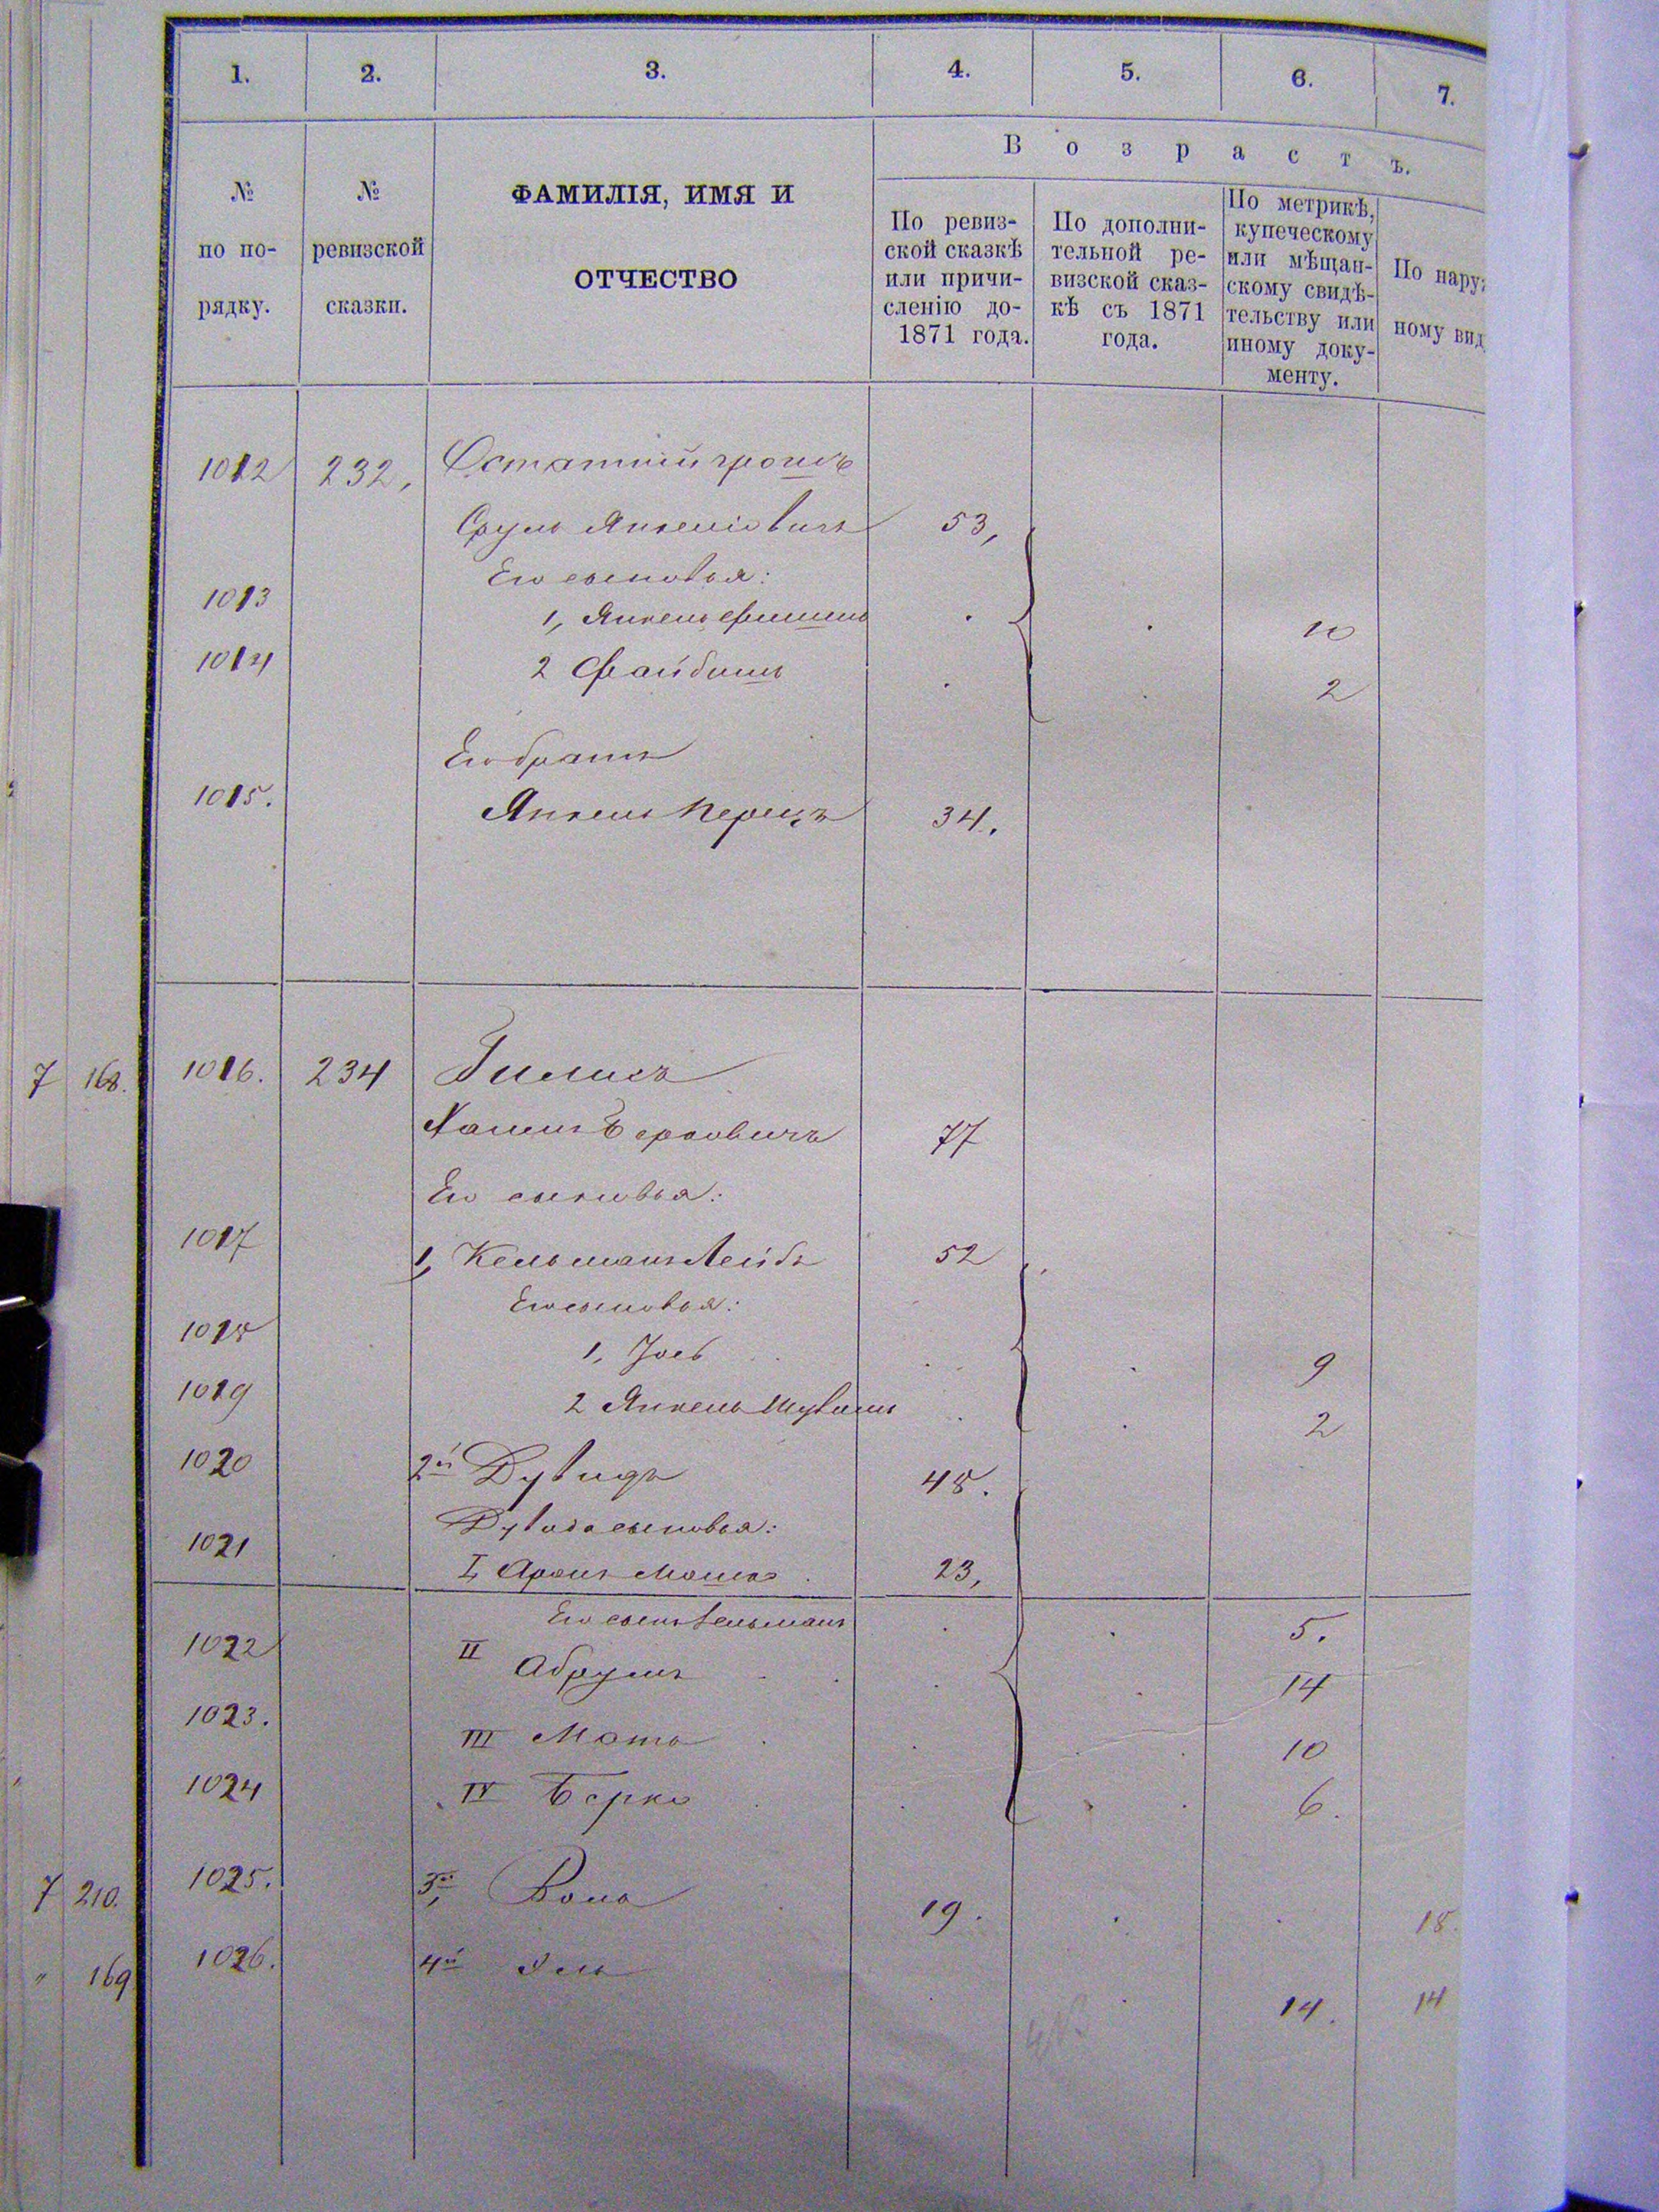 1. 2. 3. 4. 5. 6. 7.
В о з р а с т ъ.
№ по по- рядку.
№ ревизской сказки.
ФАМИЛІЯ, ИМЯ И
ОТЧЕСТВО
По ревиз-
ской сказкѣ
или причи-
сленію до-
1871 года.
По дополни-
тельной ре-
визской сказ-
кѣ съ 1871
года.
По метрикѣ,
купеческому
или мѣщан-
скому свидѣ-
тельству или
иному доку-
менту.
По нару
ному вид
1012 232, Остатнійгрошъ
Сруль Янкеліовичъ 53,
Его сыновья:
1013 1, Янкель 10
1014 2 Файбишъ 2
Его братъ
1015. Янкель Перецъ 34.
7 168. 1016. 234 Гилисъ
Хаимъ Берковичъ 77
Его сыновья:
1017 1, Кельманъ Лейбъ 52
Его сыновья:
1018 1, Іось 9
1019 2 Янкель 2
1020 2й Дувидъ 48.
Дувида сыновья:
1021 I, Аронъ Мошко 23,
Его сынъ Кельманъ 5.
1022 II Абрумъ 14
1023. III Мото 10
1024 IV Берко 6.
7 210. 1025. 3й, 19. 18.
" 169 1026. 4й 14. 14